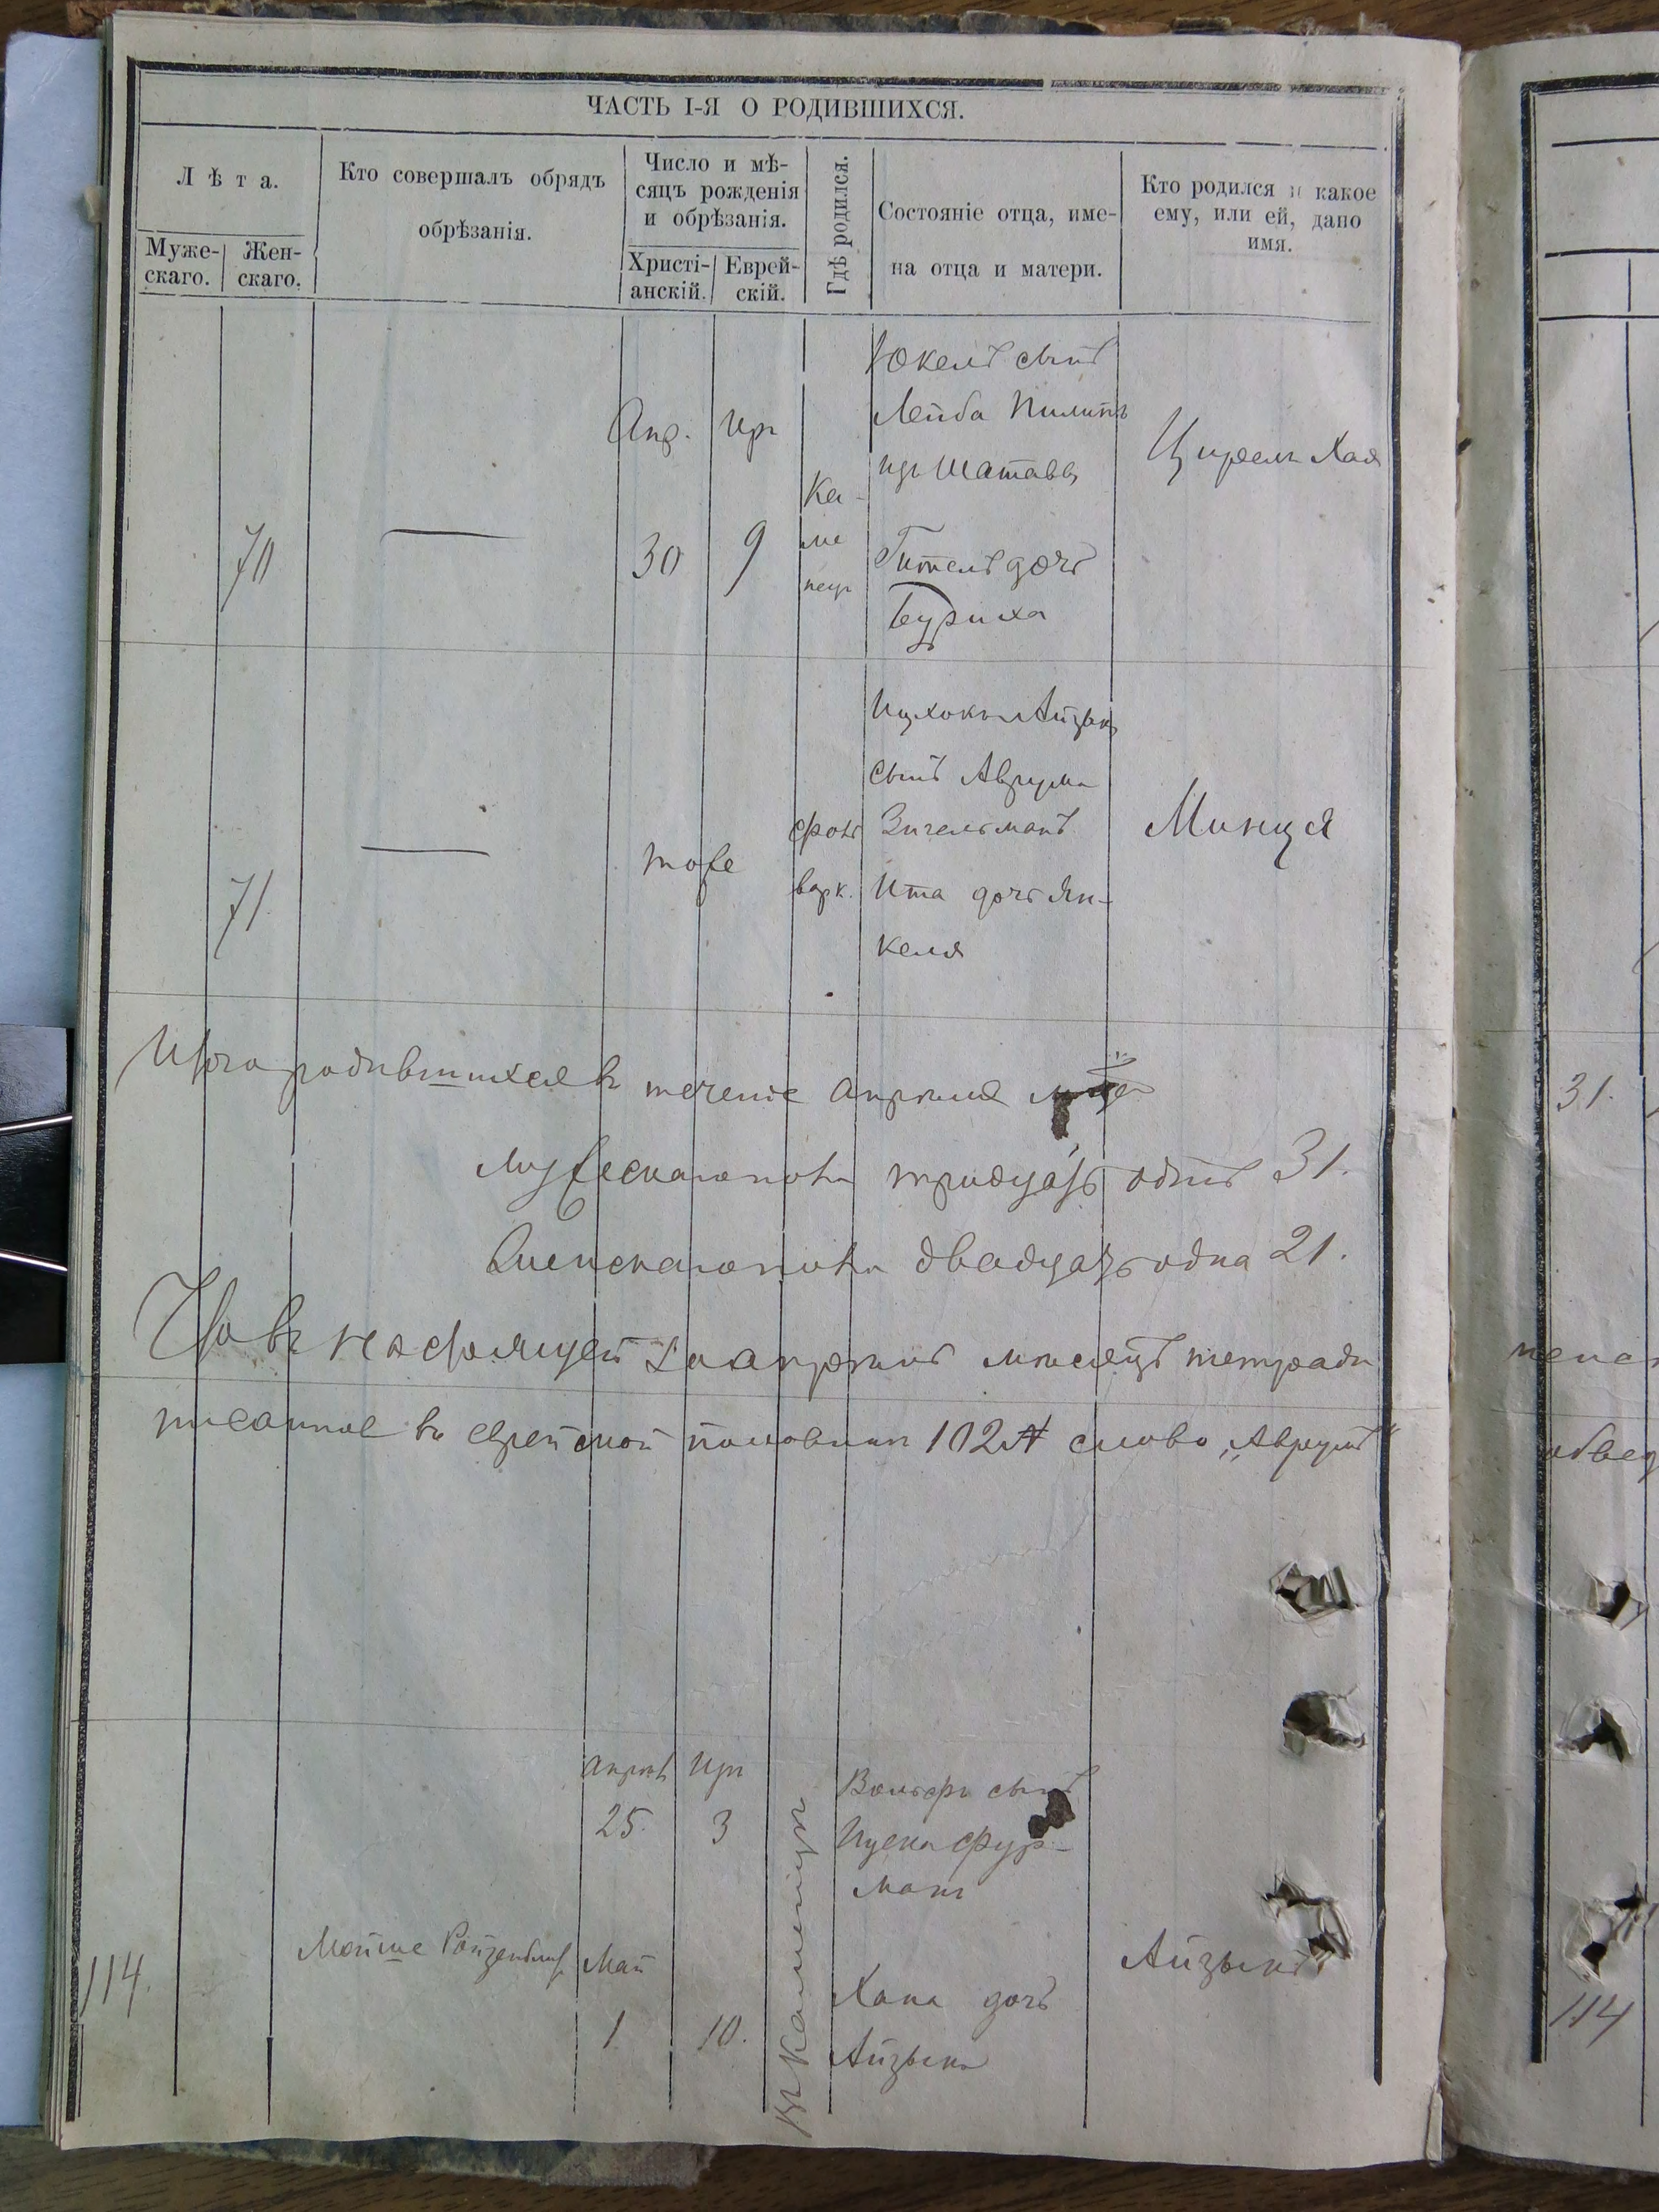 ЧАСТЬ I-Я О РОДИВШИХСЯ.
Лѣта.
Муже-
скаго.
Жен-
скаго.
Кто совершалъ обрядъ
обрѣзанія.
Число и мѣ-
сяцъ рожденія
и обрѣзанія.
Христі-
анскій.
Еврей-
скій.
Гдѣ родился.
Состояніе отца, име-
на отца и матери.
Кто родился и какое
ему, или ей, дано
имя.
70
—
Апр.
30
Иръ
9
Ка-
ме
нецъ
Юкель сынъ
Лейба
изъ Шатавы
Гитель дочь
Боруха
Цирель Хая
71.
—
тоже
фоль
варк.
Ицхокъ Айзыкъ
сынъ Аврума
Зигельманъ
Ита дочь Ян-
келя
Минця
Итого родившихся въ теченіе апрѣля м-ца
мужескаго пола тридцать одинъ 31.
Женскаго пола двадцать одна 21.
Что въ настоящей за апрѣль мѣсяцъ тетради
писанное въ еврейской половинѣ 102 № слово „Аврумъ"
114.
Мойше Ройзенблит
апрѣль
25.
Май
1.
Иръ
3
10.
въ Каменецъ
Вольфъ сынъ
Ицека Фур-
манъ
Хана дочь
Айзыка
Айзыкъ
31.
114